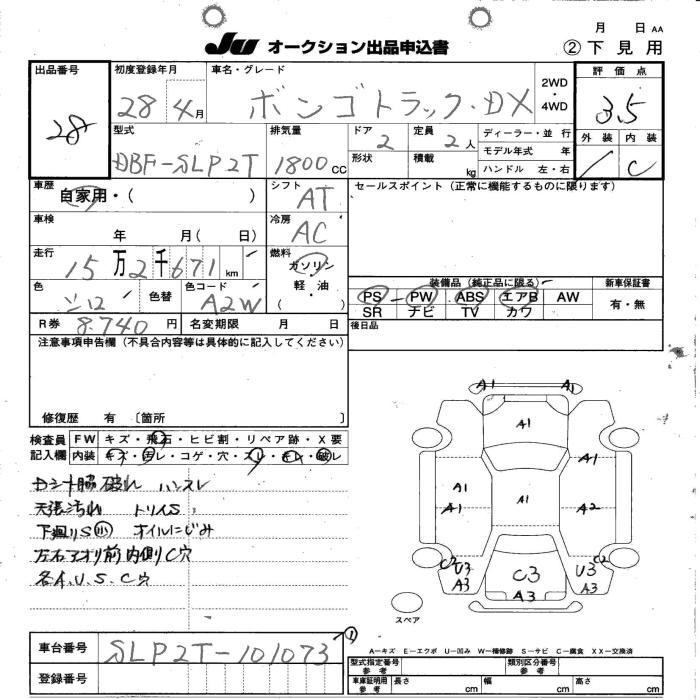 月 日 AA
JU オークション出品申込書
② 下見用
出品番号
28
初度登録年月
28 4月
車名・グレード
ボンゴトラック・DX
2WD・4WD
評価点
3.5
型式
DBF-SLP2T
排気量
1800cc
ドア
2
定員
2人
ディーラー・並行
モデル年式 年
ハンドル 左・右
形状
積載
kg
外装 内装
C
車歴
自家用・( )
シフト
AT
セールスポイント（正常に機能するものに限ります）
車検
年 月( 日)
冷房
AC
走行
15万2千671km
燃料
ガソリン
軽油
色
色替
色コード
A2W
装備品（純正品に限る）
新車保証書
PS PW ABS エアB AW
SR ナビ TV カワ
有・無
R券 8.740円
名変期限 月 日
後日品
注意事項申告欄（不具合内容等は具体的に記入してください）
修復歴 有 〔箇所 〕
検査員記入欄
FW キズ・飛石・ヒビ割・リペア跡・X要
内装 キズ・汚レ・コゲ・穴・スレ・キレ・破レ
カシート脇破れ ハンスレ
天張汚れ トリムS
下廻りS小 オイルにじみ
左右アオリ前内側C穴
各A.U.S.C穴
A1 A1
A1
A1
A1
A1
A1
A2
C2 U3 A3
C3
A3
C2 U3 A3
スペア
車台番号
SLP2T-101073
①
登録番号
A－キズ E－エクボ U－凹み W－補修跡 S－サビ C－腐食 XX－交換済
型式指定番号 参考
類別区分番号 参考
車庫証明用 参考
長さ cm
幅 cm
高さ cm